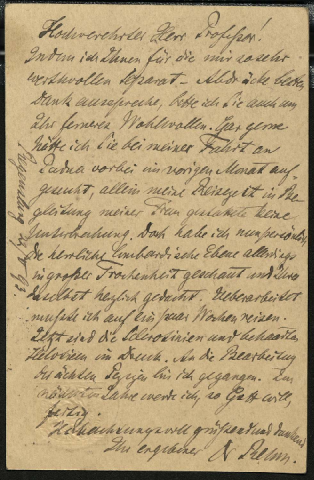 Hochverehrtester Herr Professor!
Indem ich Ihnen für die mir so sehr
werthvollen Separat-Abdrücke besten
Dank ausspreche, bitte ich Sie auch um
Ihr ferneres Wohlwollen. Gar gerne
hätte ich Sie bei meiner Fahrt an
Padua vorbei im vorigen Monat auf-
gesucht, allein meine Reisezeit in Be-
gleitung meiner Frau gestattete keine
Unterbrechung. Doch habe ich nun persönlich
die herrliche lombardische Ebene allerdings
in großer Trockenheit geschaut und Ihrer
daselbst herzlich gedacht. Ueberarbeitet
mußte ich auf ein paar Wochen reisen.
Jetzt sind die Sclerotinien und behaarten
Helveleen im Druck. An die Bearbeitung
der ächten Pezizen bin ich gegangen. Im
nächsten Jahre werde ich, so Gott will,
fertig.
Hochachtungsvoll grüßend und dankend
Ihr ergebener Dr Rehm.